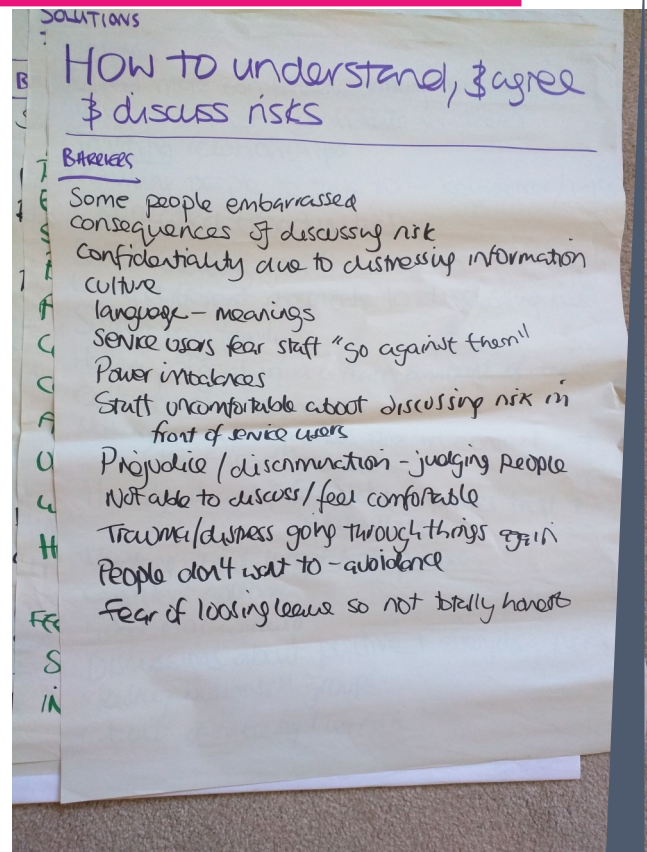 SOLUTIONS
:
HOW TO understand, & agree
& discuss risks
BARRIERS
Some people embarrassed
consequences of discussing risk
Confidentiality due to distressing information
culture
language - meanings
Service users fear staff "go against them"
Power imbalances
Staff uncomfortable about discussing risk in
front of service users
Prejudice / discrimination - judging people
Not able to discuss / feel comfortable
Trauma / distress going through things again
People don't want to - avoidance
Fear of loosing leave so not totally honest
B
FEE
S
IN